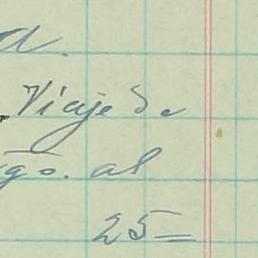 d.
Viaje de
go. al
25=